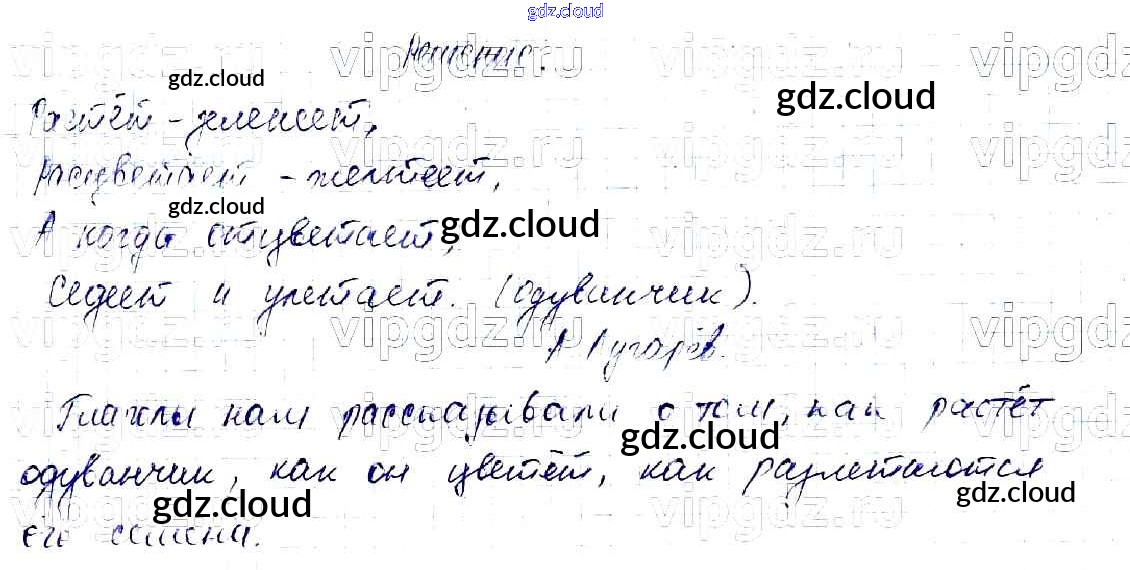 gdz.cloud
Решение:
Растёт - зеленеет,
Расцветает - желтеет,
А когда отцветает,
Седеет и улетает. (одуванчик).
А. Лугарёв.
Глаголы нам рассказывали о том, как растёт
одуванчик, как он цветёт, как разлетаются
его семена.
vipgdz.ru vipgdz.ru vipgdz.ru
gdz.cloud gdz.cloud
gdz.cloud gdz.cloud
gdz.cloud
gdz.cloud gdz.cloud